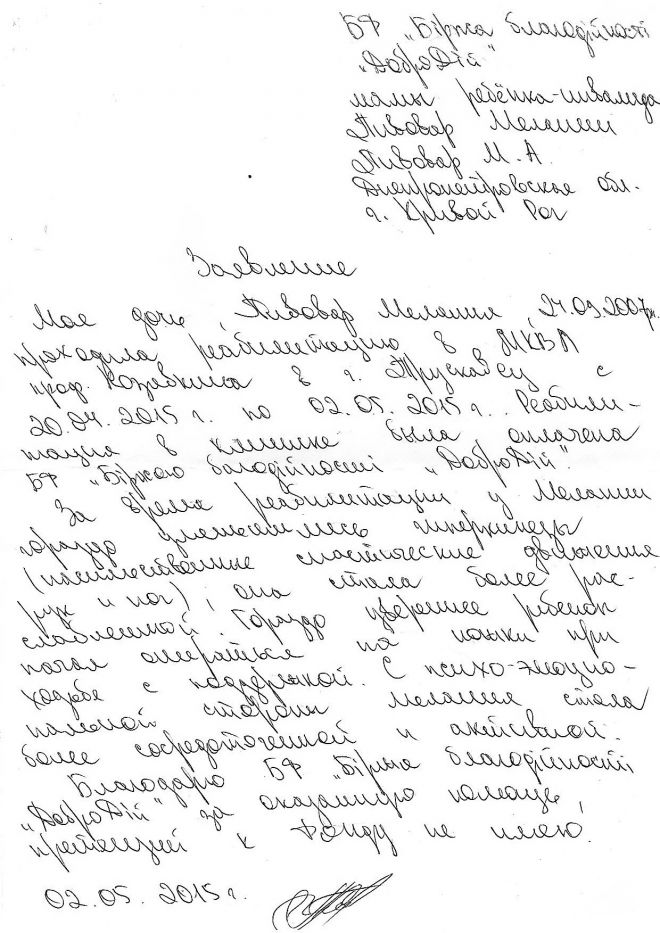 БФ "Біржа благодійності
"ДоброДій"
мамы ребёнка-инвалида
Пивовар Мелании
Пивовар М.А.
Днепропетровская обл.
г. Кривой Рог
Заявление
Моя дочь, Пивовар Мелания, 24.09.2007р.
проходила реабилитацию в МКВЛ
проф. Козявкина в г. Трускавец с
20.04.2015 г. по 02.05.2015 г. Реабили-
тация в клинике была оплачена
БФ "Біржою благодійності "ДоброДій".
За время реабилитации у Мелании
гораздо уменьшились гиперкинезы
(насильственные спастические движения
рук и ног), она стала более рас-
слабленной. Гораздо увереннее ребенок
начал опираться на ножки при
ходьбе с поддержкой. С психо-эмоцио-
нальной стороны Мелания стала
более сосредоточенной и активной.
Благодарю БФ "Біржа благодійності
"ДоброДій" за оказанную помощь,
претензий к Фонду не имею.
02.05.2015 г.